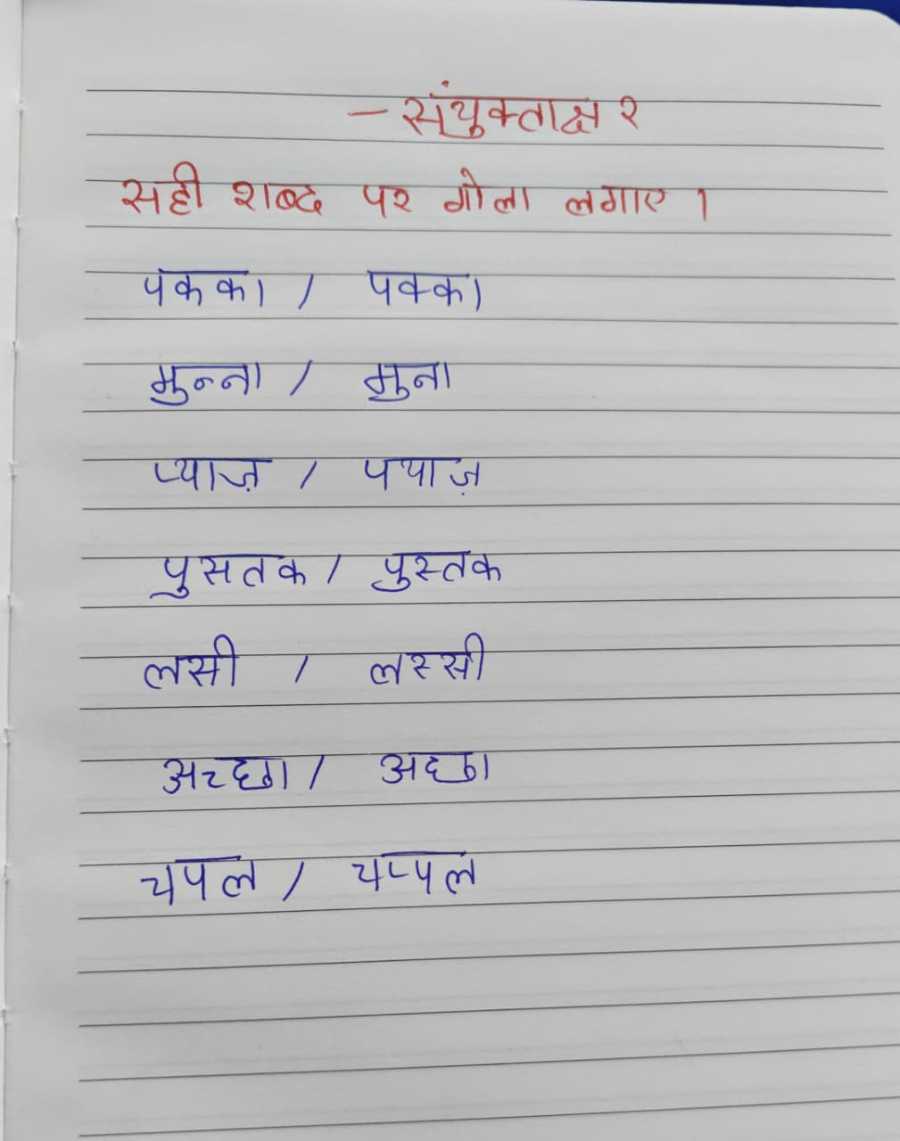 - संयुक्ताक्षर
सही शब्द पर गोला लगाए ।
पकका / पक्का
मुन्ना / मुना
प्याज़ / पयाज़
पुसतक / पुस्तक
लसी / लस्सी
अच्छा / अछा
चपल / चप्पल